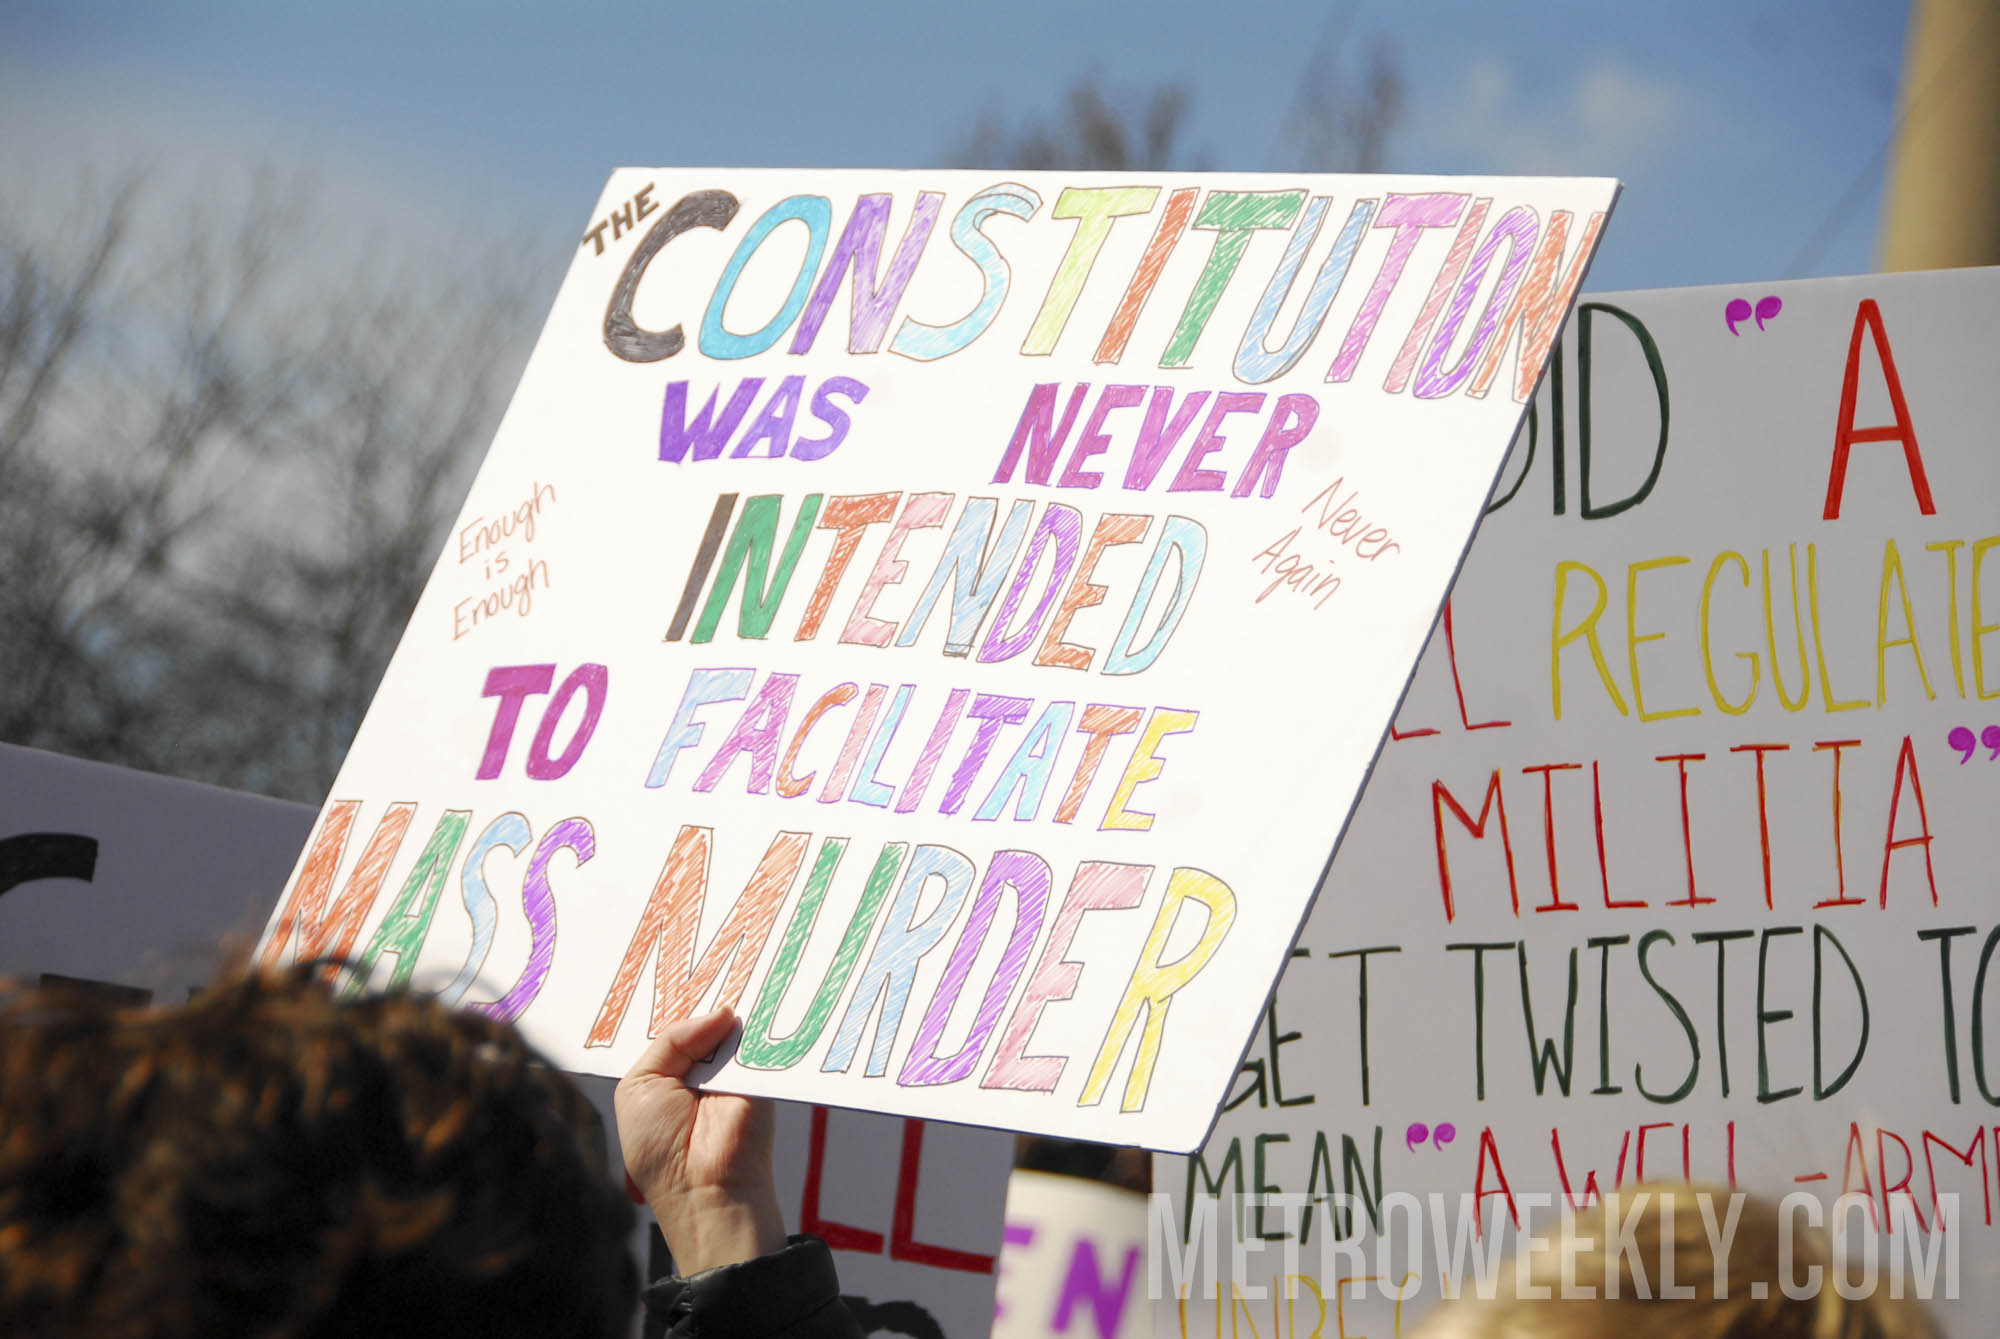 THE CONSTITUTION
WAS NEVER
INTENDED
TO FACILITATE
MASS MURDER
Enough
is
Enough
Never
Again
"A
REGULATE
MILITIA"
GET TWISTED TO
MEAN "A WELL-ARME
METROWEEKLY.COM